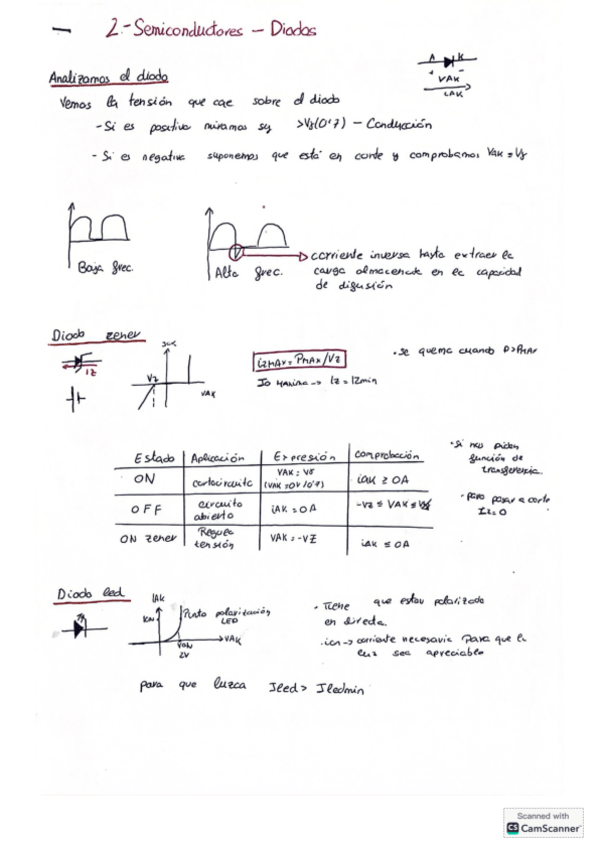 2.- Semiconductores - Diodos
A K
+ VAK -
iAK
Analizamos el diodo
Vemos la tensión que cae sobre el diodo
- Si es positiva miramos si >Vγ(0'7) - Conducción
- Si es negativa suponemos que está en corte y comprobamos VAK = Vγ
Baja frec.
Alta frec.
corriente inversa hasta extraer la
carga almacenada en la capacidad
de difusión
Diodo zener
IZ
VZ
VAK
iZMAX = PMAX/VZ
Io maxima -> IZ = IZmin
· se quema cuando P>PMAX
Estado Aplicación Expresión Comprobación
ON cortocircuito VAK = Vγ (VAK = 0V/0'7) iAK ≥ 0A
OFF circuito abierto iAK = 0A -VZ ≤ VAK ≤ Vγ
ON zener Regula tensión VAK = -VZ iAK ≤ 0A
· Si nos piden
función de
transferencia.
- para pasar a corte
IZ=0
Diodo led
IAK
ION
Punto polarización
LED
VAK
VON
2V
· Tiene que estar polarizado
en directa.
· ion -> corriente necesaria para que la
luz sea apreciable
para que luzca Iled > Iledmin
Scanned with
CS CamScanner